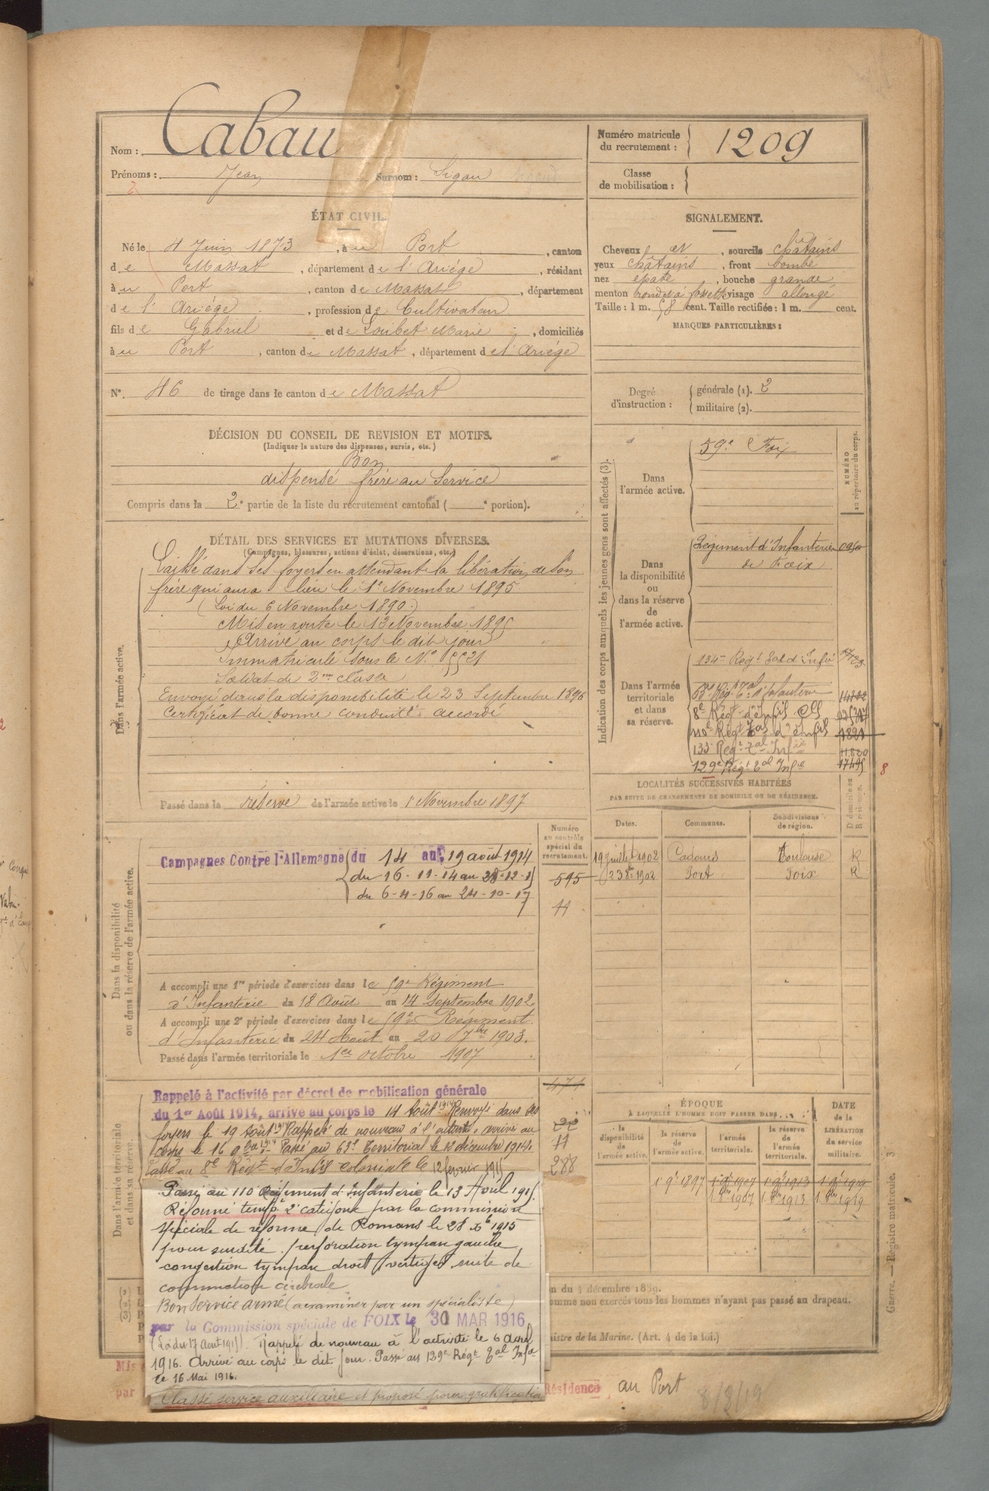 Nom : Cabau
Prénoms : Jean Surnom : Sigau
Numéro matricule du recrutement : 1209
Classe de mobilisation :
ÉTAT CIVIL.
Né le 4 Juin 1873, à u Port, canton
de Massat, département de l'Ariège, résidant
à u Port, canton de Massat, département
de l'Ariège, profession de Cultivateur
fils de Gabriel et de Loubet Marie, domiciliés
à u Port, canton de Massat, département de l'Ariège
N° 46 de tirage dans le canton de Massat
SIGNALEMENT.
Cheveux et, sourcils châtains
yeux châtains, front bombé
nez épaté, bouche grande
menton rond et à fossette visage allongé
Taille : 1 m. 58 cent. Taille rectifiée : 1 m. cent.
MARQUES PARTICULIÈRES :
Degré d'instruction : générale (1). 2
militaire (2).
DÉCISION DU CONSEIL DE REVISION ET MOTIFS.
(Indiquer la nature des dispenses, sursis, etc.)
Bon
dispensé frère au Service
Compris dans la 2e partie de la liste du recrutement cantonal ( e portion).
DÉTAIL DES SERVICES ET MUTATIONS DIVERSES.
(Campagnes, blessures, actions d'éclat, décorations, etc.)
Dans l'armée active.
Laissé dans ses foyers en attendant la libération de son
frère qui aura lieu le 1er Novembre 1895
(Loi du 6 Novembre 1890.)
Mis en route le 13 Novembre 1895
Arrivé au corps le dit jour
Immatriculé sous le N° 5521
Soldat de 2me classe
Envoyé dans la disponibilité le 23 Septembre 1896
Certificat de bonne conduite accordé
Passé dans la réserve de l'armée active le 1 Novembre 1897
Indication des corps auxquels les jeunes gens sont affectés (3).
NUMÉRO au répertoire du corps.
Dans l'armée active.
59e Foix
Dans la disponibilité ou dans la réserve de l'armée active.
Régiment d'Infanterie
de Foix
Dans l'armée territoriale et dans sa réserve.
134e Régt Territ d'Infie
8e Régt d'Infie Cle
133e Régt Tal Infie
129e Régt Tal Infie
LOCALITÉS SUCCESSIVES HABITÉES
PAR SUITE DE CHANGEMENTS DE DOMICILE OU DE RÉSIDENCE.
Dates. Communes. Subdivisions de région.
19 juillet 1902 Cadours Toulouse R
Port Foix R
Numéro au contrôle spécial du recrutement.
595
Dans la disponibilité ou dans la réserve de l'armée active.
Campagnes Contre l'Allemagne du 14 au 19 août 1914
du 16-11-14 au 28-12-15
du 6-4-16 au 24-10-17
A accompli une 1re période d'exercices dans le 59e Régiment
d'Infanterie du 18 Août au 14 Septembre 1902
A accompli une 2e période d'exercices dans le Régiment
d'Infanterie du 24 Août au 20 7bre 1903.
Passé dans l'armée territoriale le 1er octobre 1907
Dans l'armée territoriale et dans sa réserve.
Rappelé à l'activité par décret de mobilisation générale
du 1er Août 1914, arrivé au corps le 14 Août 1914 Renvoyé dans ses
foyers le 19 Août 1914 Rappelé de nouveau à l'activité, arrivé au
Corps le 16 Passé au 63e Territorial le 10 décembre 1914
Passé au 8e Régt d'Infie coloniale le 12 février 1915
288
Passé au 110 Régiment d'Infanterie le 13 Avril 1915.
Réformé tempre 2e catégorie par la commission
spéciale de réforme de Romans le 28 Xbre 1915
pour surdité, perforation tympan gauche
congestion tympan droit, vertiges suite de
commotion cérébrale
Bon service armé (à examiner par un spécialiste)
par la Commission spéciale de FOIX le 30 MAR 1916
(Loi du 17 Aout 1915). Rappelé de nouveau à l'activité le 6 avril
1916. Arrivé au corps le dit jour. Passé au 129e Régt Tal Infie
le 16 Mai 1916.
Classé service auxiliaire et proposé pour gratification
ÉPOQUE
À LAQUELLE L'HOMME DOIT PASSER DANS
la disponibilité de l'armée active.
la réserve de l'armée active.
l'armée territoriale.
la réserve de l'armée territoriale.
DATE de la LIBÉRATION du service militaire.
1 9bre 1897
1 8bre 1907 1 8bre 1913 1 8bre 1919
Guerre. — Registre matricule. 3
comme non exercés tous les hommes n'ayant pas passé au drapeau.
(Art. 4 de la loi.)
Résidence au Port
8/3/19